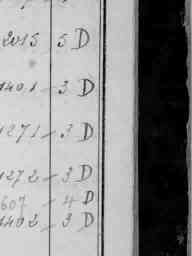 2015 5 D
1401 - 3 D
1271 - 3 D
1272 - 3 D
607 - 4 D
1402 - 3 D